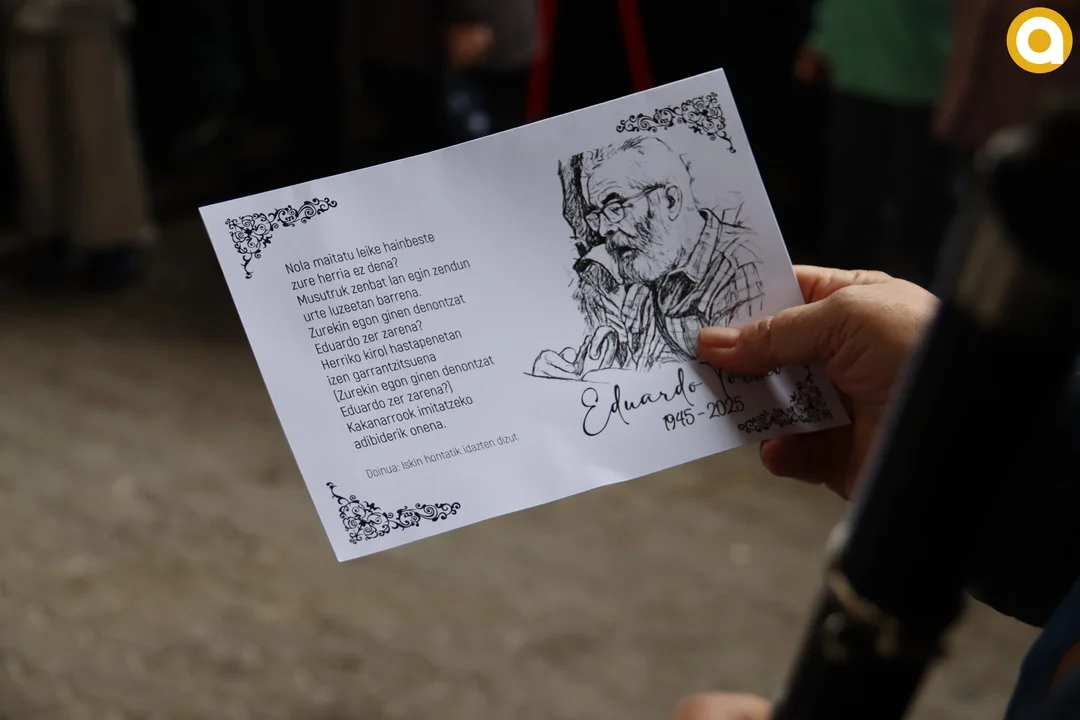 Nola maitatu leike hainbeste
zure herria ez dena?
Musutruk zenbat lan egin zendun
urte luzeetan barrena.
Zurekin egon ginen denontzat
Eduardo zer zarena?
Herriko kirol hastapenetan
izen garrantzitsuena
(Zurekin egon ginen denontzat
Eduardo zer zarena?)
Kakanarrook imitatzeko
adibiderik onena.
Doinua: Iskin hontatik idazten dizut
Eduardo
1945-2025
a